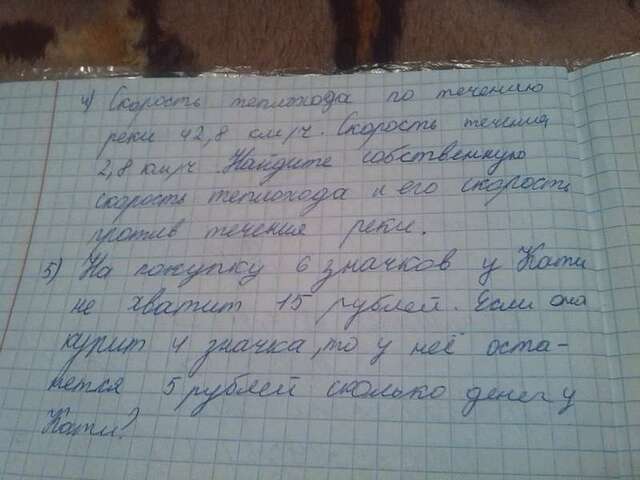 4) Скорость теплохода по течению
реки 42,8 км/ч. Скорость течения
2,8 км/ч Найдите собственную
скорость теплохода и его скорость
против течения реки.
5) На покупку 6 значков у Кати
не хватит 15 рублей. Если она
купит 4 значка, то у неё оста-
нется 5 рублей сколько денег у
Кати?